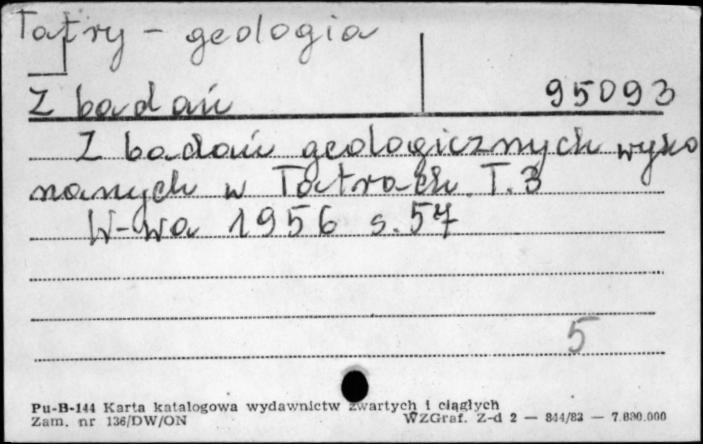 Tatry - geologia
Z badań 95093
Z badań geologicznych wyko
nanych w Tatrach T. 3
W-wa 1956 s. 57
5
Pu-B-144 Karta katalogowa wydawnictw zwartych i ciągłych
Zam. nr 136/DW/ON WZGraf. Z-d 2 — 844/83 — 7.000.000